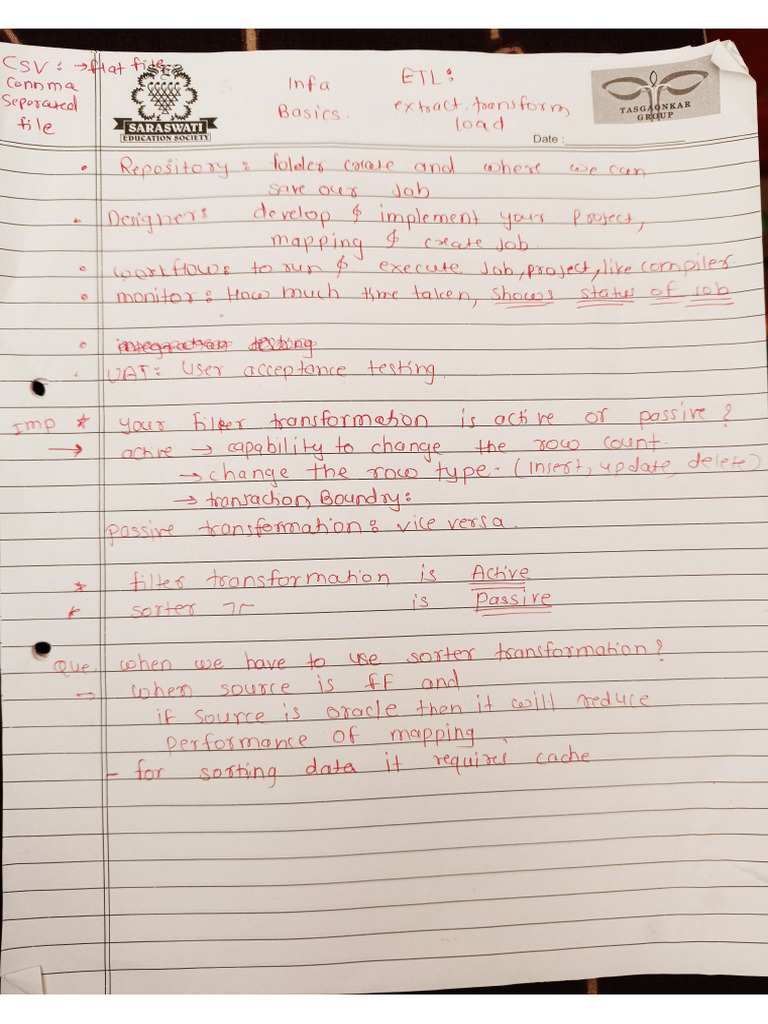 CSV: → flat file
Comma
Seperated
file
SARASWATI
EDUCATION SOCIETY
Infa
Basics.
ETL:
extract. transform
load
TASGAONKAR
GROUP
Date :
• Repository: folder create and where we can
save our Job
• Designer: develop & implement your Project,
mapping & create Job.
• workflows to run & execute Job, project, like compiler.
• monitor: How much time taken, shows status of Job
• integration testing
• UAT: User acceptance testing.
Imp * your filter transformation is active or passive?
→ active → capability to change the row count.
→ change the row type - (insert, update, delete)
→ transaction Boundry:
Passive transformation: vice versa.
* filter transformation is Active
* sorter is Passive
Que. when we have to use sorter transformation?
→ when source is ff and
if source is oracle then it will reduce
performance of mapping
- for sorting data it requires cache